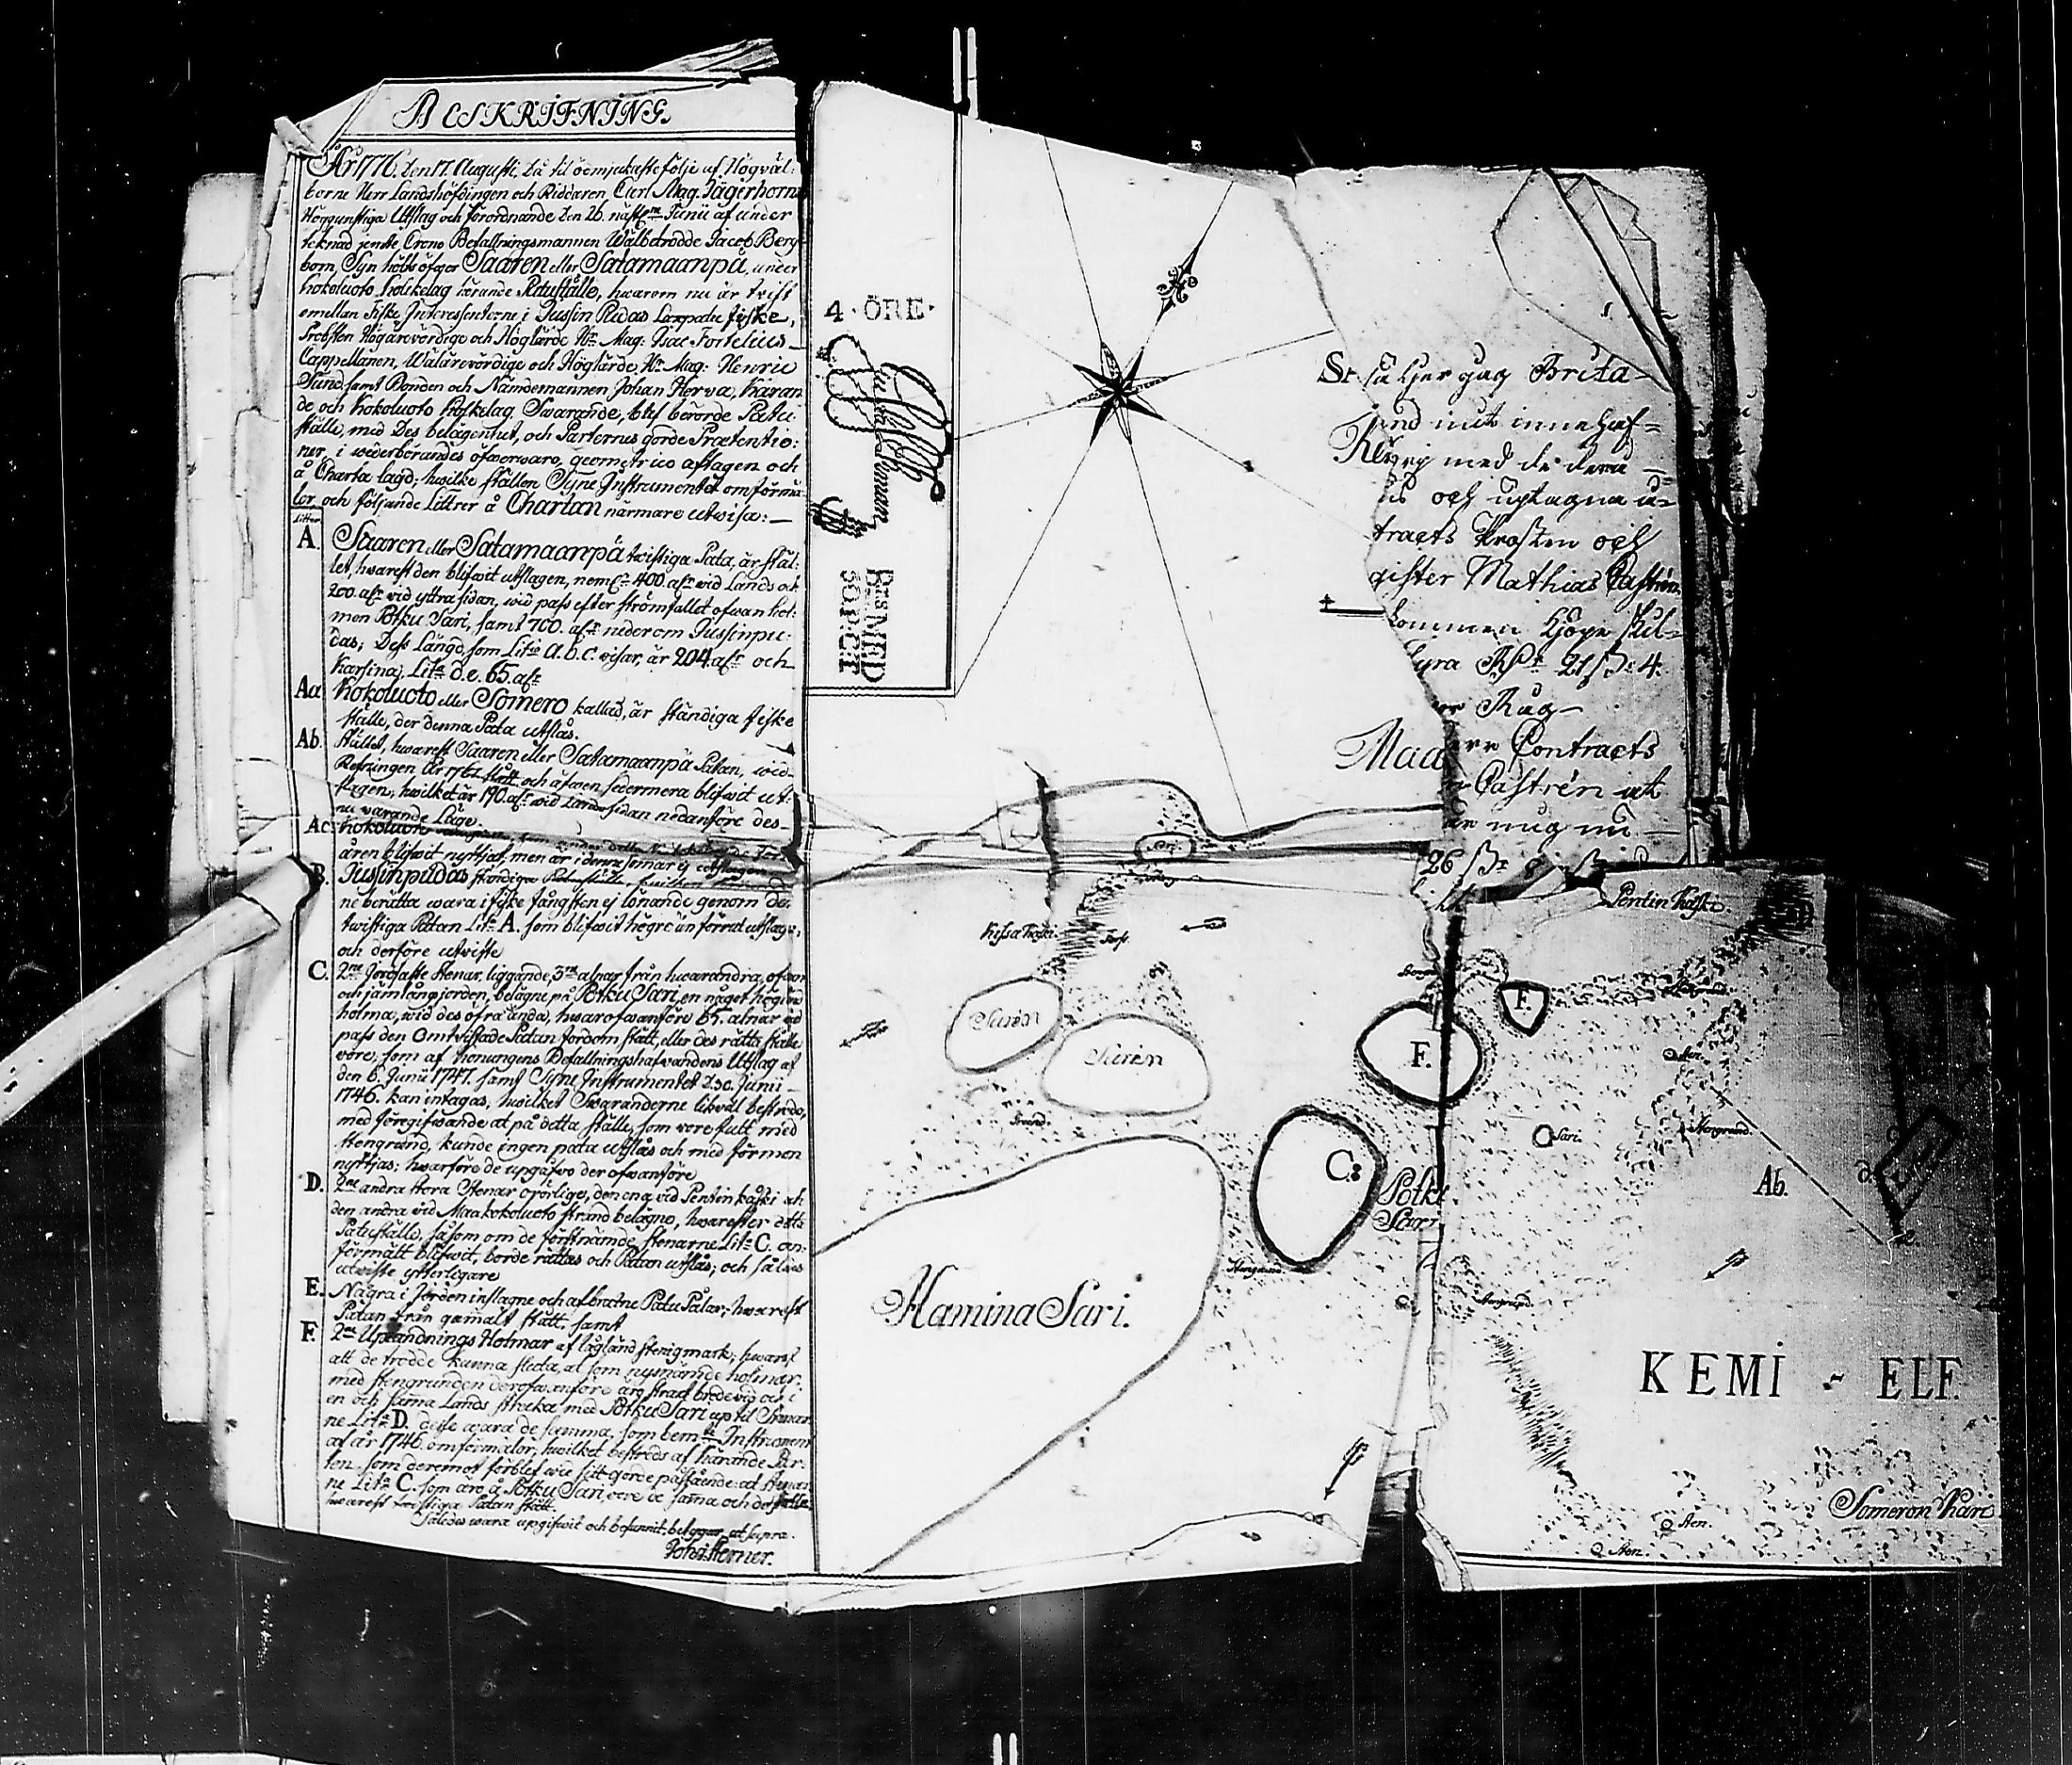 BESKRIFNING.
År 1776. den 17. Augusti, då til ödmjukaste följe af Högväl:
borne Herr Landshöfdingen och Riddaren Carl Mag: Jägerhorns
Höggunstiga Utslag och förordnande den 26. nästl. Junii af under
teknad jemte Crono Befallningsmannen Wälbetrodde Jacob Berg
bom, Syn hölts öfwer Saaren eller Satamaanpä, under
Kokoluoto Kolkelag hörande Patuställe, hwarom nu är tvist
emellan Fiske Interessenterne i Jussin Pudas Laxpatu fiske,
Probsten Högärevördige och Höglärde Hr. Mag: Isac Fortelius
Cappellanen, Wälärevördige och Höglärde, Hr. Mag: Henric
Sund, samt Bonden och Nämdemannen Johan Herva, Käran
de och Kokoluoto Kolkelag Swarande, blef berörde Patu
ställe, med Des belägenhet, och Parternes gorde Prætentio:
ner, i wederbörandes öfwerwaro, geometrice aftagen och
å Charta lagd; hwilke ställen Syne Instrumentet omförmä
ler, och följande Littrer å Chartan närmare utwisa:
Litter
A. Saaren eller Satamaanpä twistiga Pata, är stäl-
let, hwarest den blifwit utslagen, neml. 400. alr wid Lands och
200. alr vid yttra sidan, wid pass efter strömfallet ofwan hol:
men Pötku Sari, samt 700. alr nederom Jussinpu:
das; Dess Längd, som Litr. a.b.c. wisar, är 204. alr och
Karsina, Litr. d.e. 65. alr
Aa Kokoluoto eller Somero kallad, är ständiga fiske
ställe, der denna Pata utslås.
Ab. Stället, hwarest Saaren eller Satamaanpä Patan, wid
Refningen År 1762. stått och äfwen sedermera blifwit ut:
slagen, hwilket är 190. alr wid Lands sidan nedanföre des
nu warande Läge.
Ac. Kokoluoto
åren blifwit nyttjat, men är i denna somar ej utslagen
B. Jussinpudas ständiga Patu ställe,
ne berätta wara i fiske fångsten ej lönande genom den
twistiga Patan Litr. A. som blifwit högre än förut utslagen,
och derföre utwiste
C. 2ne Jordfaste Stenar, liggande, 3ne alnar från hwarandra, ofwan
och jämt långs jorden, belägne på Pötku Sari, en något högländ
holma, wid des öfra ända, hwarofwanföre 65. alnar wid
pass den Omtwistade Patan fordom stått, eller des rätta ställe
vore, som af Konungens Befallningshafvandens Utslag af
den 6. Junii 1747. samt Syne Instrumentet d. 30. Junii
1746. kan intagas, hwilket Swaranderne likväl bestredo,
med föregifwande at på detta ställe, som vore fullt med
stengrund, kunde ingen pata utslås och med förmon
nyttjas; hwarföre de upgåfwo der ofwanföre
D. 2ne andra stora Stenar orörlige, den ena vid Pentin kåski och
den andra vid Maakokoluoto strand belägne, hwarefter detta
Patuställe, såsom om de förstnämde stenarne Litr. C. an:
förmält blifwit, borde rättas och Patan utslås; och således
utwiste ytterligare
E. Några i Jorden inslagne och afbrutne Patu Pålar, hwarest
Patan från gamalt stått, samt
F. 2ne Uplandnings Holmar af lågländ stenigmark; hwaraf
att de trodde kunna sluta, at som nysnämde holmar,
med stengrunden derofwanföre äro strax bredevid och i
en och samma Lands sträcka med Pötku Sari up til Stenar
ne Litr. D. desse wara de samma, som bem. Instrument
af år 1746. omförmäler, hwilket bestreds af Kärande Par:
ten, som deremot förblef wid sitt gjorde påstående: at Stenar
ne Litr. C. som äro å Pötku Sari, vore de samma och det ställe
hwarest twistiga Patan stått.
Således wara upgifwit och befunnit, betygar, ut supra.
Joh: Hemer.
4 · ÖRE ·
BES MED
Sari
Forss
Kåski.
Saren
Saren
Grund.
Stengrund
Hamina Sari.
C.
Pötku
Sari
F.
F.
Pentin Kåski.
Stengrund
Sten.
Sari.
Stengrund.
Ab.
d.
e
Stengrund.
KEMI - ELF.
Someron Kari
Sten.
Sten.
säljer jag Brita
and mit innehaf=
med de derå
och uptagna
tracts Prosten och
gister Mathias Castrén
kommen Kjöpe skil=
21
Råg
Maa
Contracts
Castrén at
mig nu
26